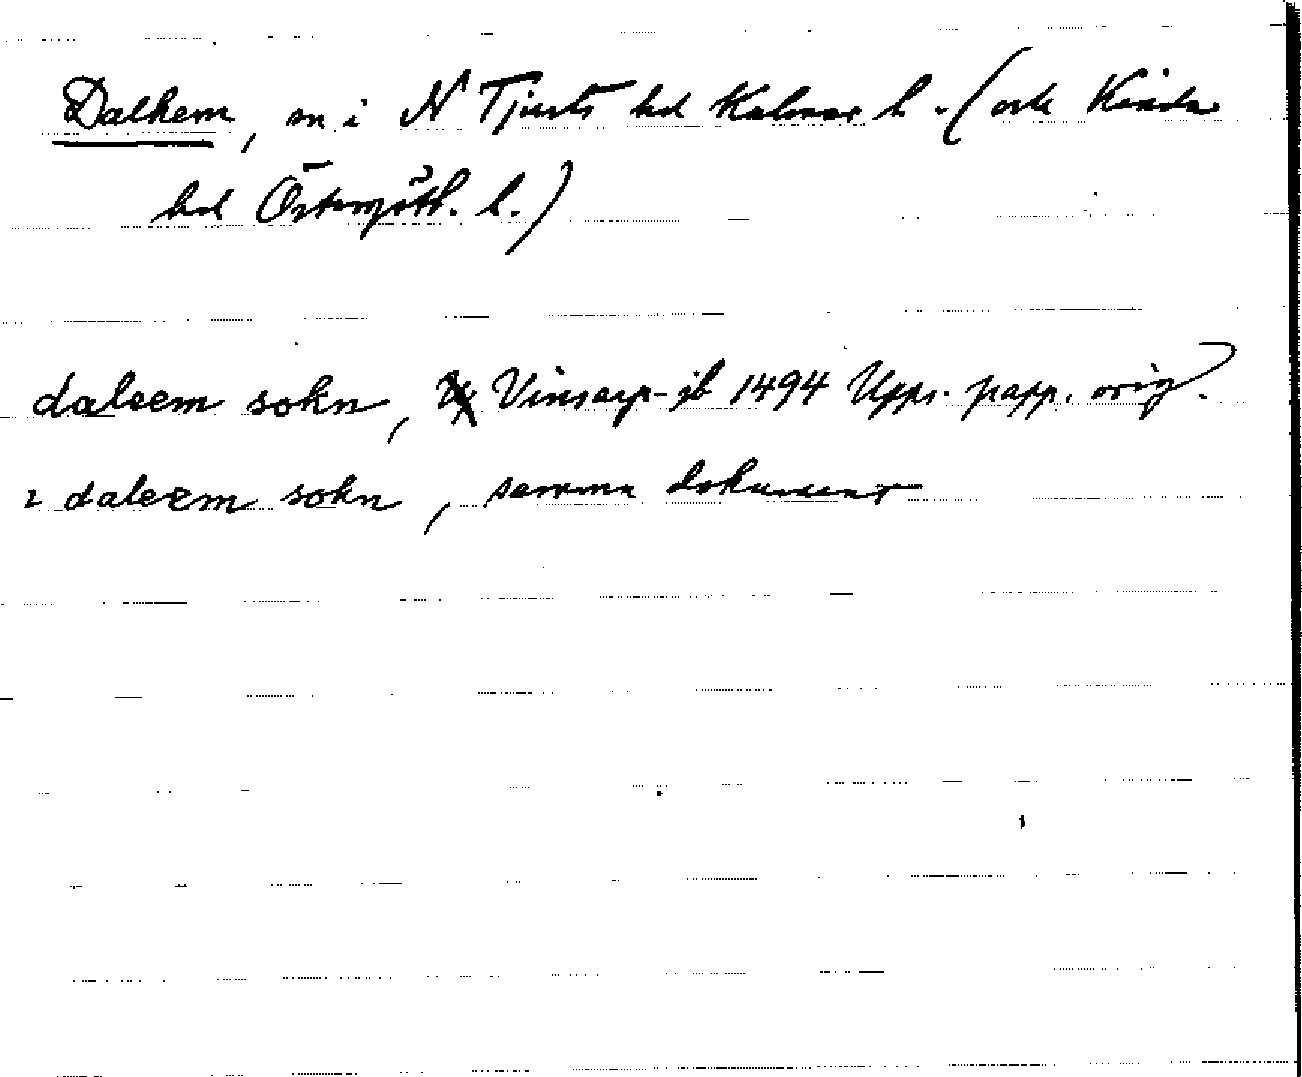 Dalhem, sn i N Tjusts hd Kalmar l. (och Kinda
hd Östergötl. l.)
daleem sokn, Vinsarp-jb 1494 Upps. papp. orig.
2 daleem sokn, samma dokument